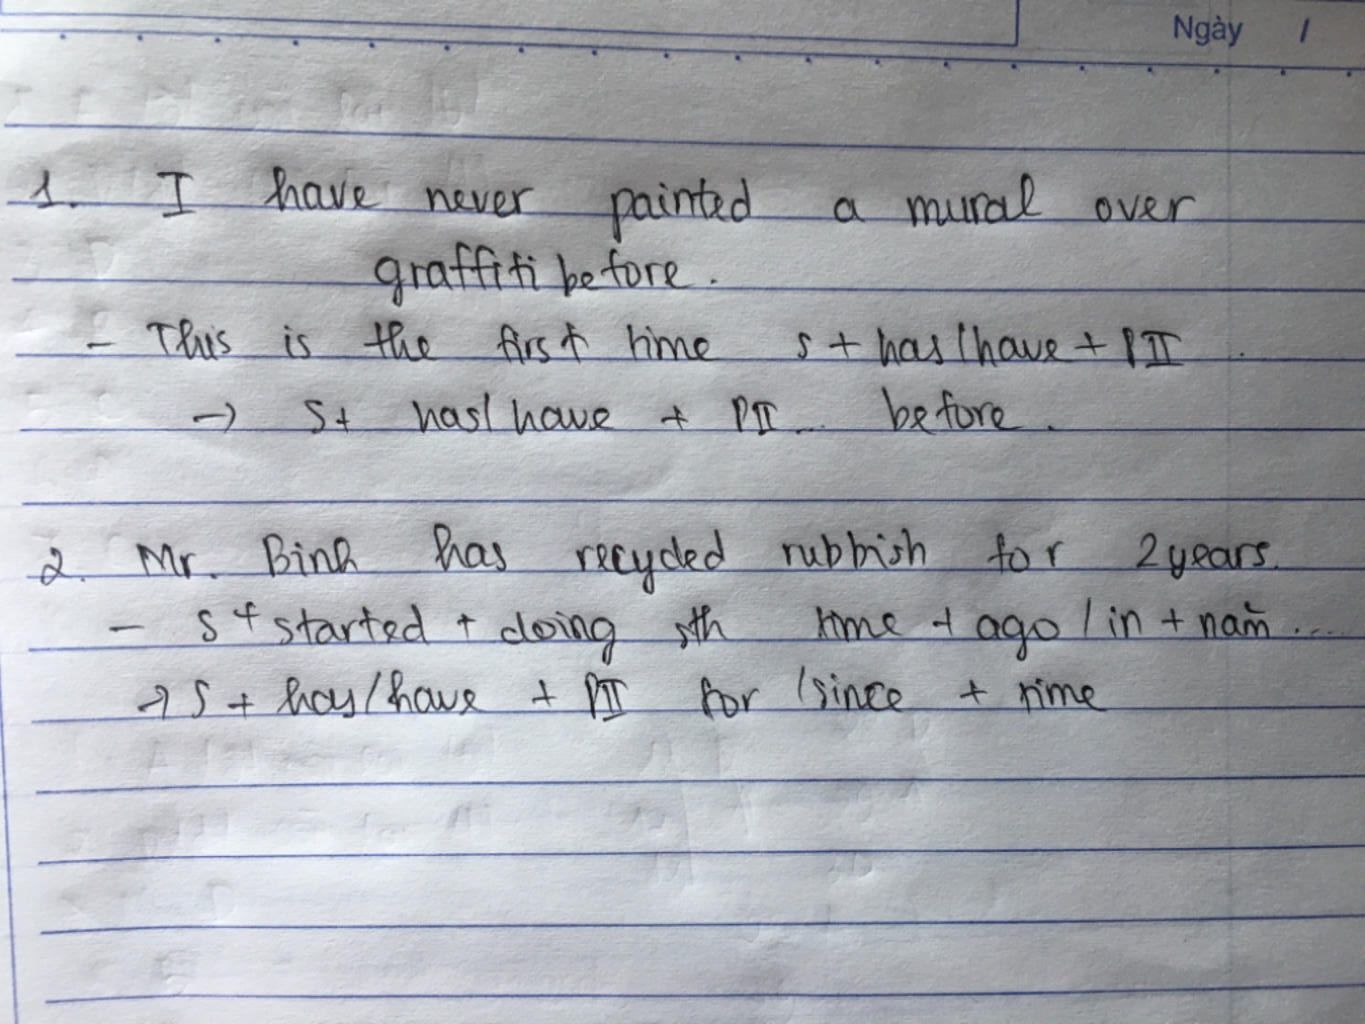 Ngày /
1. I have never painted a mural over
graffiti before.
- This is the first time S + has/have + PII.
-> S+ has/have + PII... before.
2. Mr. Binh has recycled rubbish for 2 years.
- S + started + doing sth time + ago / in + năm ...
-> S + has/have + PII for /since + time